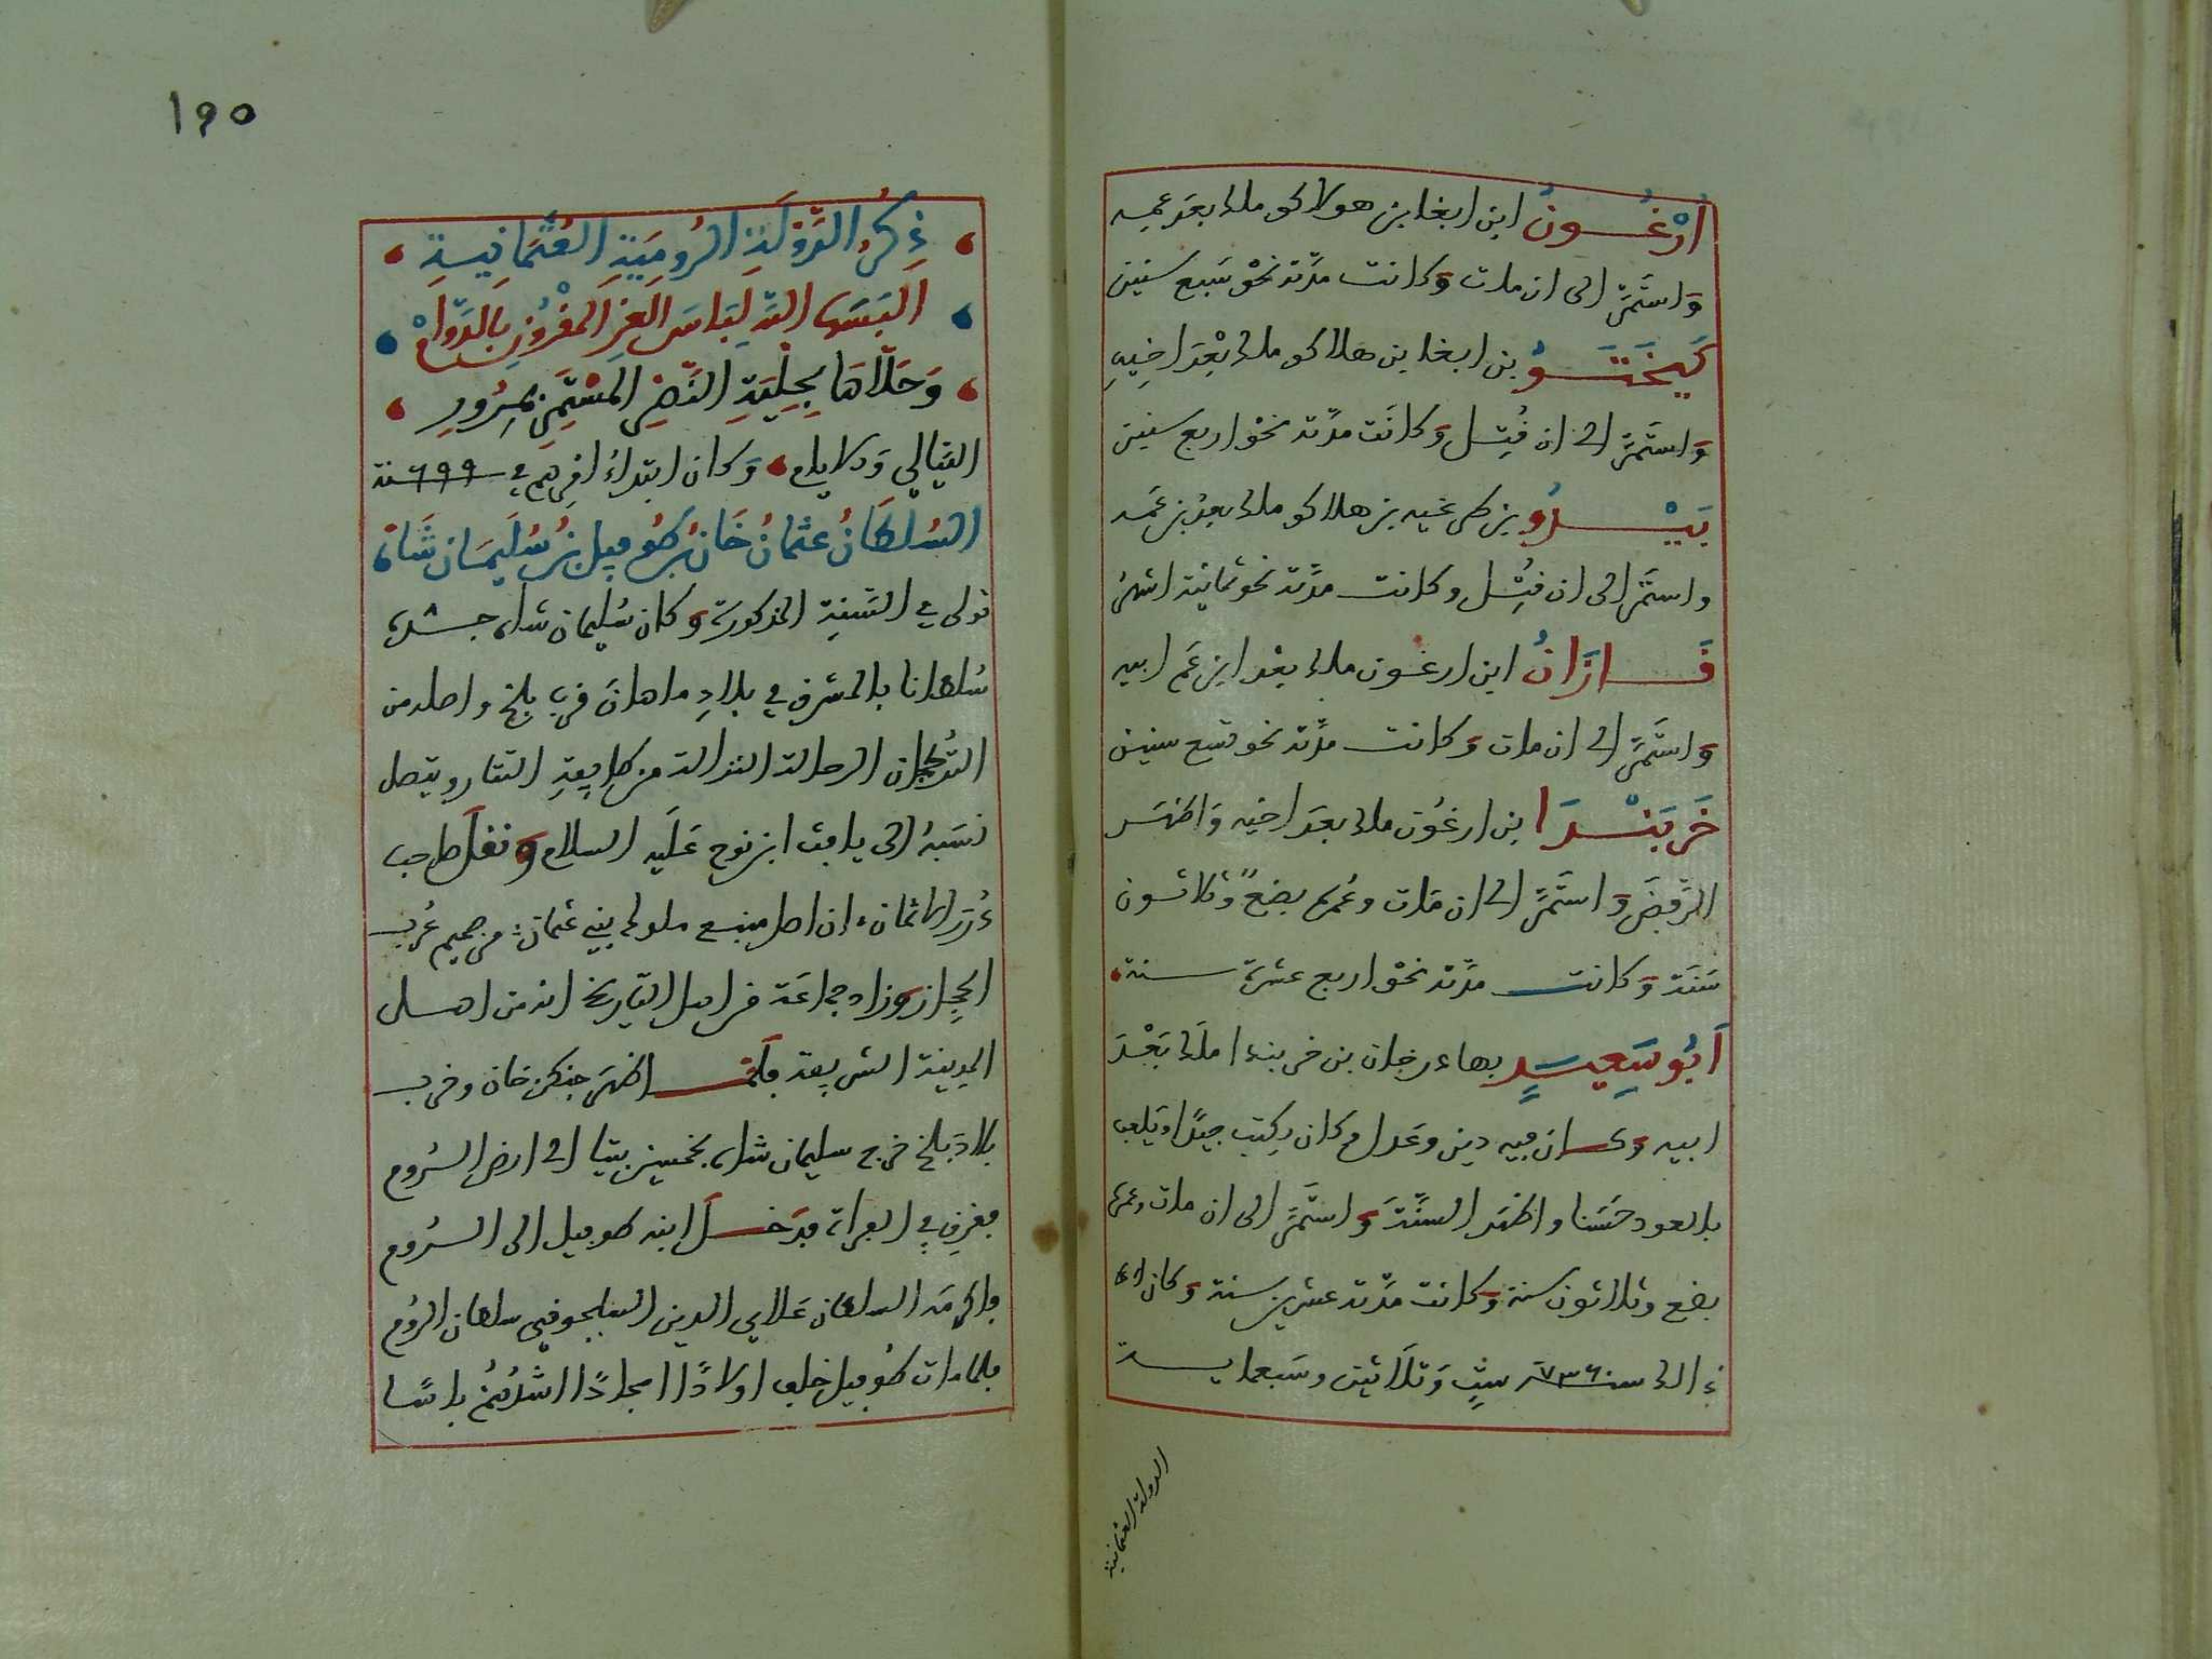 أرغون ابن ابغا بن هولاكو ملك بعد عمه
واستمر الى ان مات وكانت مدته نحو سبع سنين
كيختو بن ابغا بن هلاكو ملك بعد اخيه
واستمر الى ان قتل وكانت مدته نحو اربع سنين
بيدو بن طرغيه بن هلاكو ملك بعد بن عمه
واستمر الى ان قتل وكانت مدته نحو ثمانية اشهر
قازان ابن ارغون ملك بعد ابن عم ابيه
واستمر الى ان مات وكانت مدته نحو تسع سنين
خربندا بن ارغون ملك بعد اخيه واظهر
الرفض واستمر الى ان مات وعمره بضع وثلاثون
سنة وكانت مدته نحو اربع عشرة سنة
أبو سعيد بهادرخان بن خربندا ملك بعد
ابيه وكان فيه دين وعدل وكان يكتب جيدا ويلعب
بالعود حسنا واظهر السنة واستمر الى ان مات وعمره
بضع وثلاثون سنة وكانت مدته عشرين سنة وكان
سنة ٧٣٦ ست وثلاثين وسبعماية
الدولة العثمانية
١٩٥
ذكر الدولة الرومية العثمانية
البسها الله لباس العز المقرون بالدوام
وحلاها بحلية النصر المستمر بمرور
الليالي والايام وكان ابتداء امرهم في ٦٩٩ سنة
السلطان عثمان خان بن طغرل بن سليمان شاه
تولى في السنة المذكورة وكان سليمان شاه جده
سلطانا بالمشرق في بلاد ماهان قرب بلخ واصله من
التركمان الرحالة النزالة من طايفة التتار ويتصل
نسبه الى يافث ابن نوح عليه السلام ونقل صاحب
درر الاثمان ان اصل منبع ملوك بني عثمان من صميم عرب
الحجاز وزاد جماعة من اهل التاريخ انه من اهل
المدينة الشريفة فلما ظهر جنكز خان وخرب
بلاد بلخ خرج سليمان شاه بخمسين بيتا الى ارض الروم
فغرق في الفراة فدخل ابنه طغرل الى الروم
واكرمه السلطان علاي الدين السلجوقي سلطان الروم
فلما مات طغرل خلف اولادا امجادا اشدهم باسا